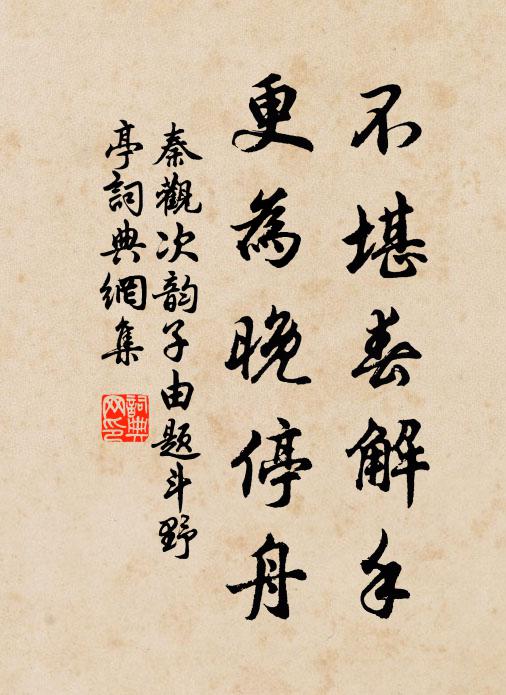 不堪春解手
更為晚停舟
秦觀次韵子由題斗野
亭詞典網集
詞典
网印